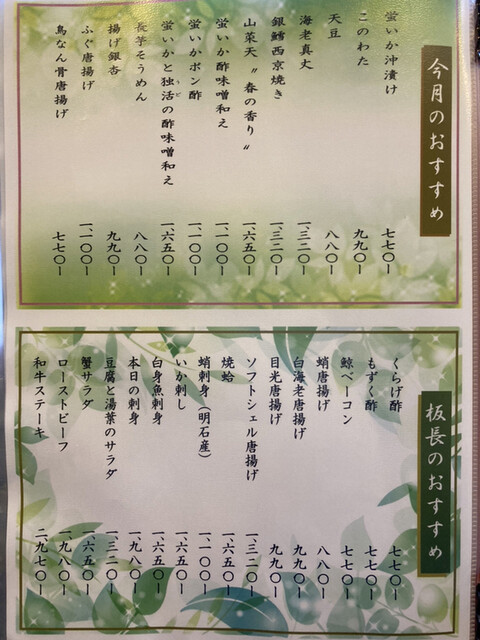 今月のおすすめ
蛍いか沖漬け 七七〇ー
このわた 九九〇ー
天豆 八八〇ー
海老真丈 一、三二〇ー
銀鱈西京焼き 一、三二〇ー
山菜天〝春の香り〟 一、六五〇ー
蛍いか酢味噌和え 一、一〇〇ー
蛍いかポン酢 一、一〇〇ー
蛍いかと独活の酢味噌和え 一、六五〇ー
長芋そうめん 八八〇ー
揚げ銀杏 九九〇ー
ふぐ唐揚げ 一、一〇〇ー
鳥なん骨唐揚げ 七七〇ー
板長のおすすめ
くらげ酢 七七〇ー
もずく酢 七七〇ー
鯨ベーコン 七七〇ー
蛸唐揚げ 八八〇ー
白海老唐揚げ 九九〇ー
目光唐揚げ 九九〇ー
ソフトシェル唐揚げ 一、三二〇ー
焼蛤 一、六五〇ー
蛸刺身（明石産） 一、一〇〇ー
いか刺し 一、六五〇ー
白身魚刺身 一、六五〇ー
本日の刺身 一、九八〇ー
豆腐と湯葉のサラダ 一、三二〇ー
蟹サラダ 一、六五〇ー
ローストビーフ 一、九八〇ー
和牛ステーキ 二、九七〇ー